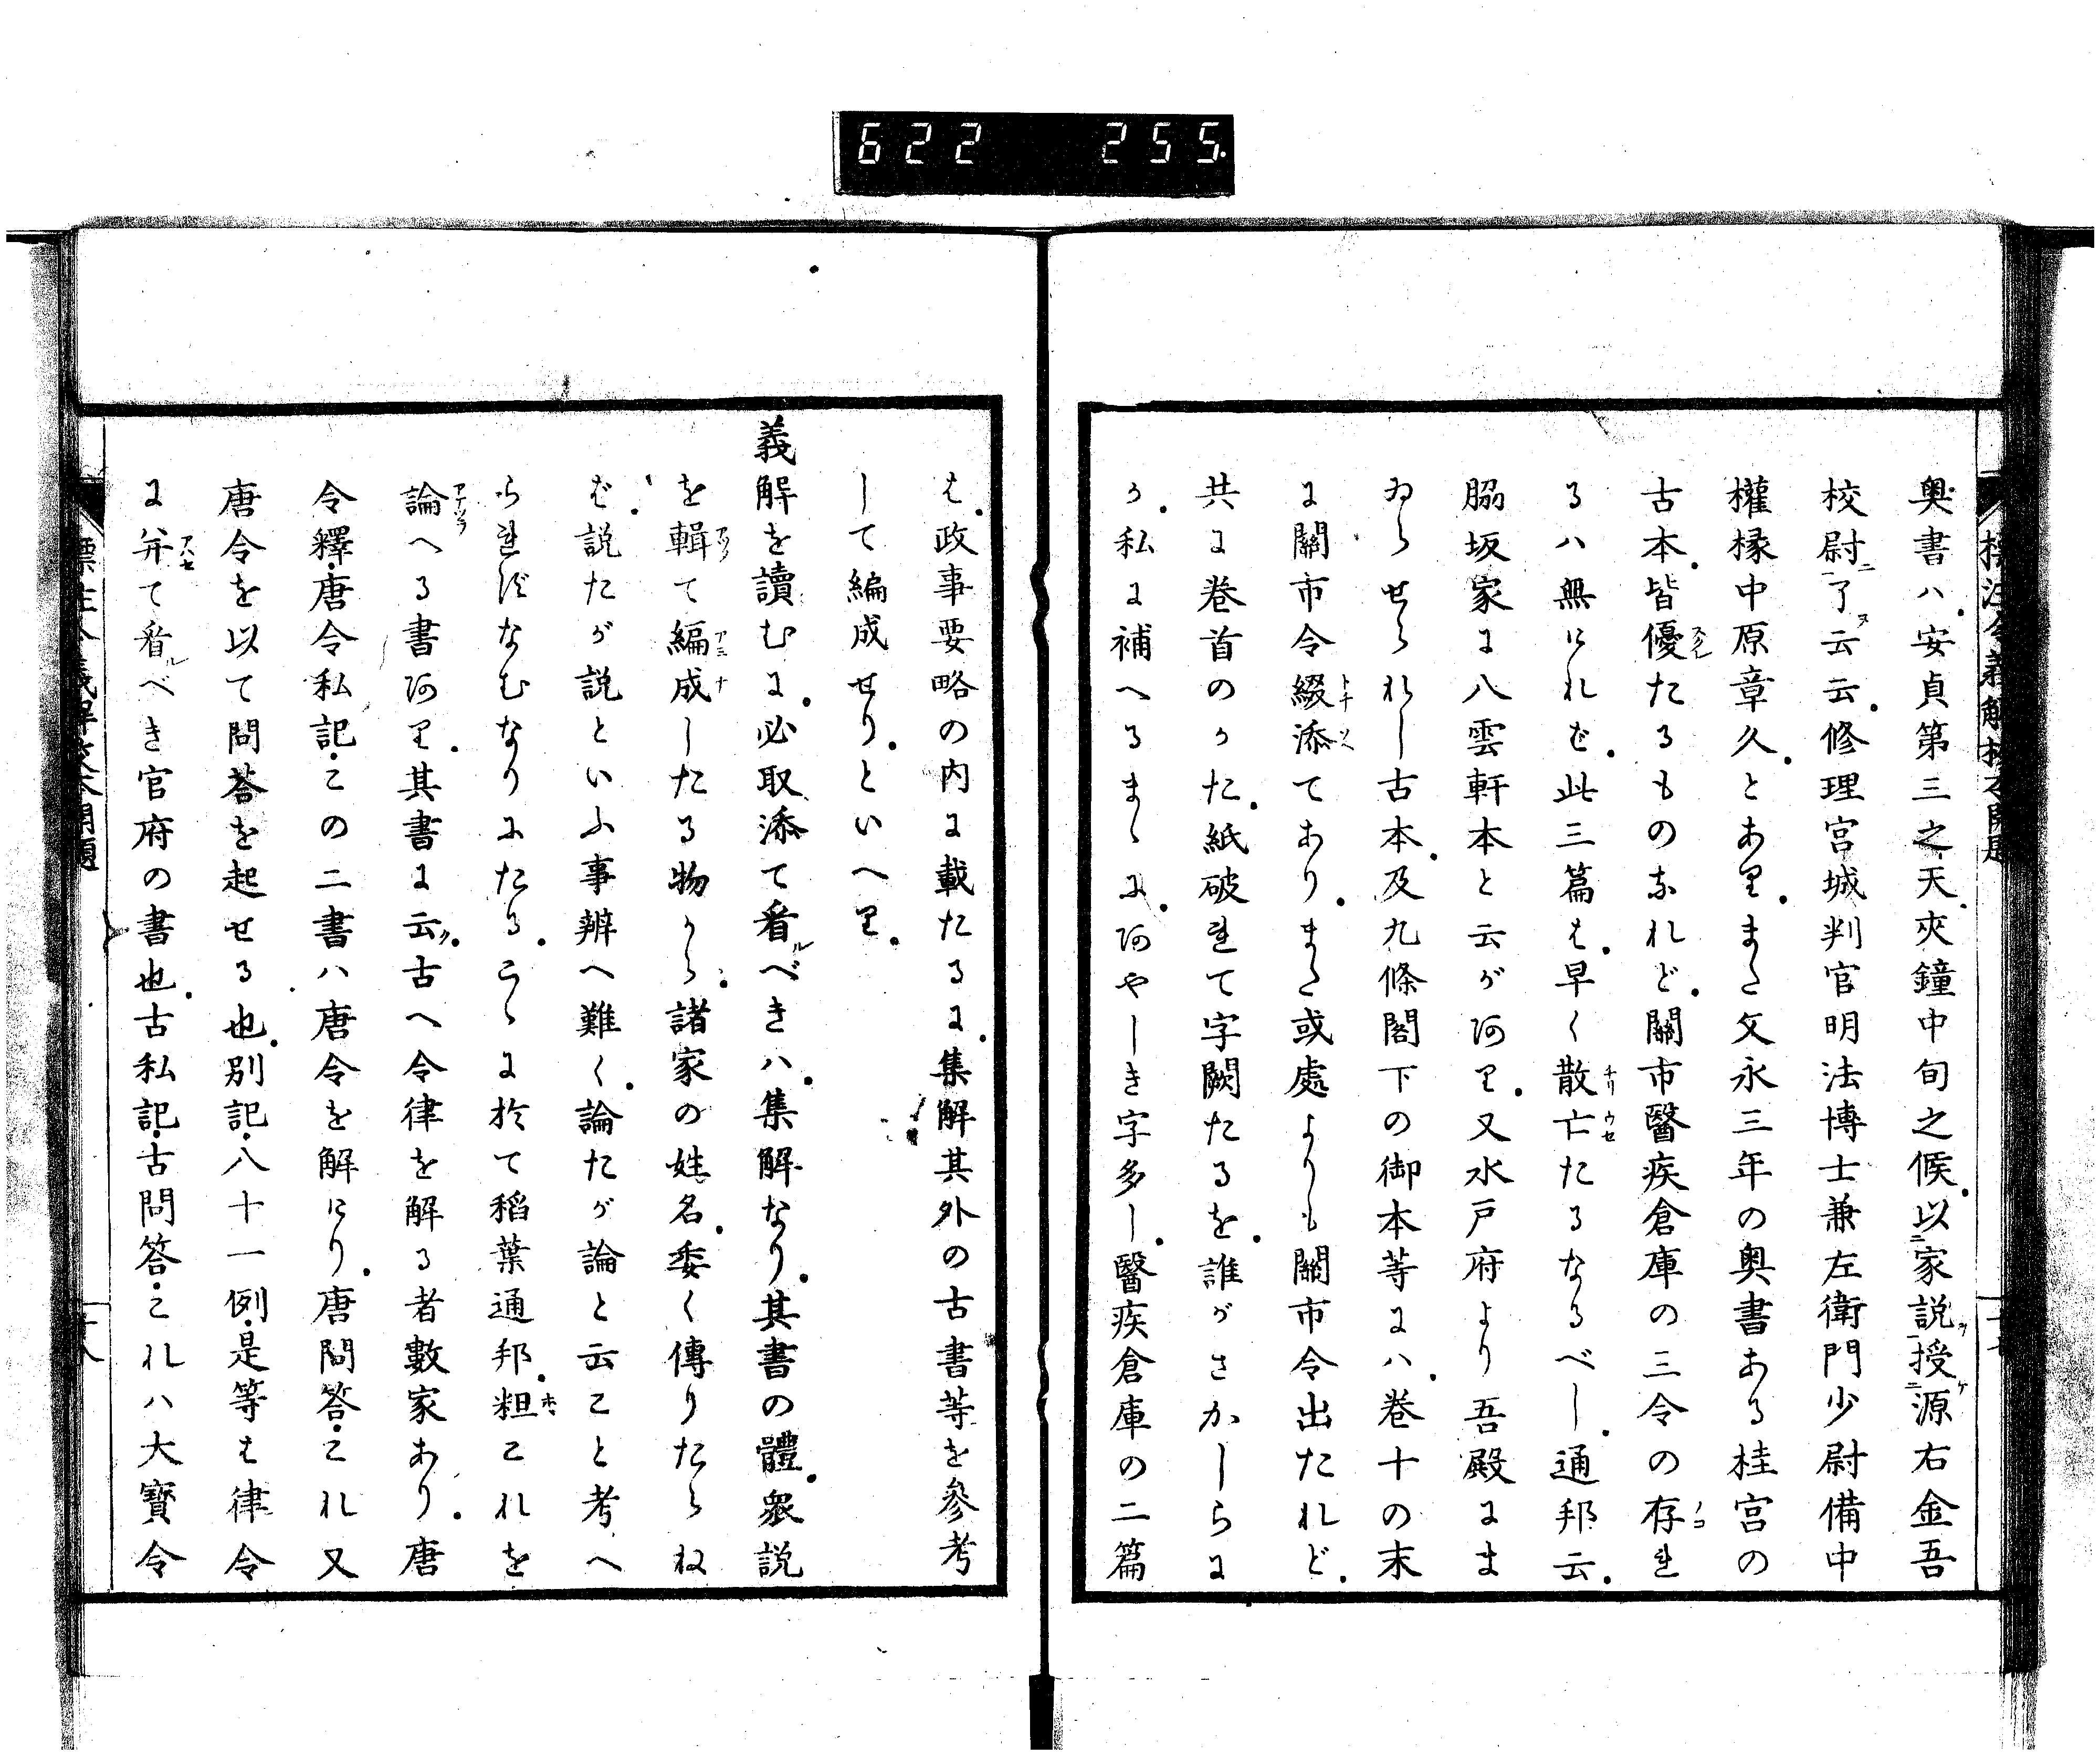 622 255.
奥書ハ安貞第三之天夾鐘中旬之候以家説授源右金吾
校尉了云云修理宮城判官明法博士兼左衛門少尉備中
權椽中原章久とあり。また文永三年の奥書ある桂宮の
古本皆優たるものなれど。關市醫疾倉庫の三令の存れ
るハ無けれど。此三篇は。早く散亡たるなるべし。通邦云。
脇坂家に八雲軒本と云が阿り。又水戸府より吾殿にま
ゐらせられし古本。及九條閣下の御本等にハ。巻十の末
に關市令綴添てあり。また或處よりも關市令出たれど。
共に巻首のかた。紙破れて字闕たるを。誰がさかしらに
か。私に補へるまゝに。阿やしき字多し。醫疾倉庫の二篇
は。政事要略の内に載たるに。集解其外の古書等を參考
して編成せり。といへり。
義解を讀むに。必取添て看べきハ。集解なり。其書の體。衆説
を輯て編成したる物から。諸家の姓名。委く傳りたらね
ば。説たが説といふ事辨へ難く。論たが論と云こと考へ
られずなむなりにたる。こゝに於て稻葉通邦。粗これを
論へる書阿り。其書に云。古へ令律を解る者數家あり。唐
令釋。唐令私記。この二書ハ唐令を解けり。唐問答。これ又
唐令を以て問荅を起せる也。別記。八十一例。是等は律令
に并て看べき官府の書也。古私記。古問答。これハ大寶令